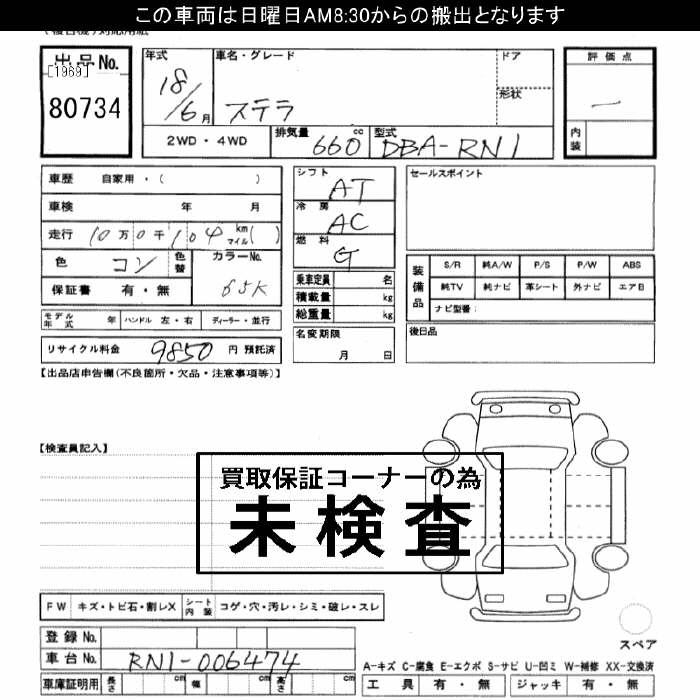 この車両は日曜日AM8:30からの搬出となります
出品No.
[1969]
80734
年式
18/6月
車名・グレード
ステラ
ドア
形状
評価点
—
内装
2WD・4WD
排気量
660 cc
型式
DBA-RN1
車歴 自家用・( )
車検 年 月
走行 10万0千104 km マイル( )
色 コン 色替
カラーNo.
65K
保証書 有・無
モデル年式 年 ハンドル 左・右 ディーラー・並行
リサイクル料金 9850 円 預託済
シフト
AT
冷房
AC
燃料
G
乗車定員 名
積載量 kg
総重量 kg
名変期限
月 日
セールスポイント
装備品
S/R 純A/W P/S P/W ABS
純TV 純ナビ 革シート 外ナビ エアB
ナビ型番:
後日品
【出品店申告欄(不良箇所・欠品・注意事項等)】
【検査員記入】
買取保証コーナーの為
未検査
FW キズ・トビ石・割レX シート内装 コゲ・穴・汚レ・シミ・破レ・スレ
登録No.
車台No. RN1-006474
車庫証明用 長さ cm 幅 cm 高さ cm
スペア
A-キズ C-腐食 E-エクボ S-サビ U-凹ミ W-補修 XX-交換済
工具 有・無 ジャッキ 有・無